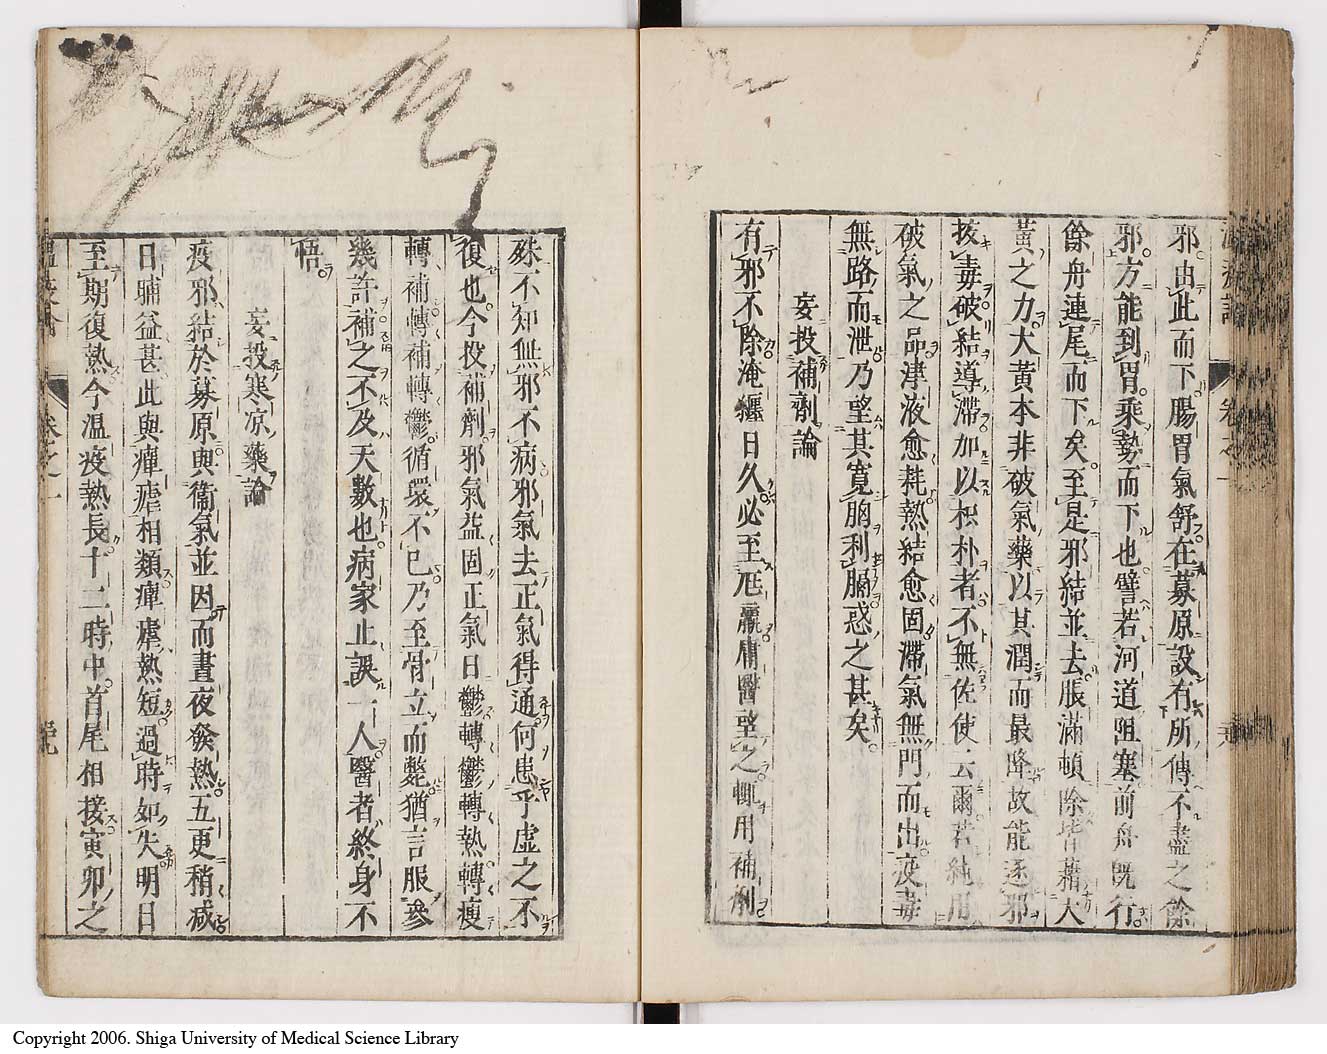 邪由此而下腸胃氣舒在募原設有所傳不盡之餘
邪方能到胃乘勢而下也譬若河道阻塞前舟既行
餘舟連尾而下矣至是邪結並去脹滿頓除皆藉大
黃之力大黃本非破氣藥以其潤而最降故能逐邪
拔毒破結導滯加以枳朴者不無佐使云爾若純用
破氣之品津液愈耗熱結愈固滯氣無門而出疫毒
無路而泄乃望其寬胸利膈惑之甚矣
妄投補劑論
有邪不除淹纏日久必至尫羸庸醫望之輒用補劑
殊不知無邪不病邪氣去正氣得通何患乎虛之不
復也今投補劑邪氣益固正氣日鬱轉鬱轉熱轉瘦
轉補轉補轉鬱循環不已乃至骨立而斃猶言服參
幾許補之不及天數也病家止誤一人醫者終身不
悟
妄投寒凉藥論
疫邪結於募原與衞氣並因而晝夜發熱五更稍減
日晡益甚此與瘅瘧相類瘅瘧熱短過時如失明日
至期復熱今温疫熱長十二時中首尾相接寅卯之
卷之一
Copyright 2006. Shiga University of Medical Science Library